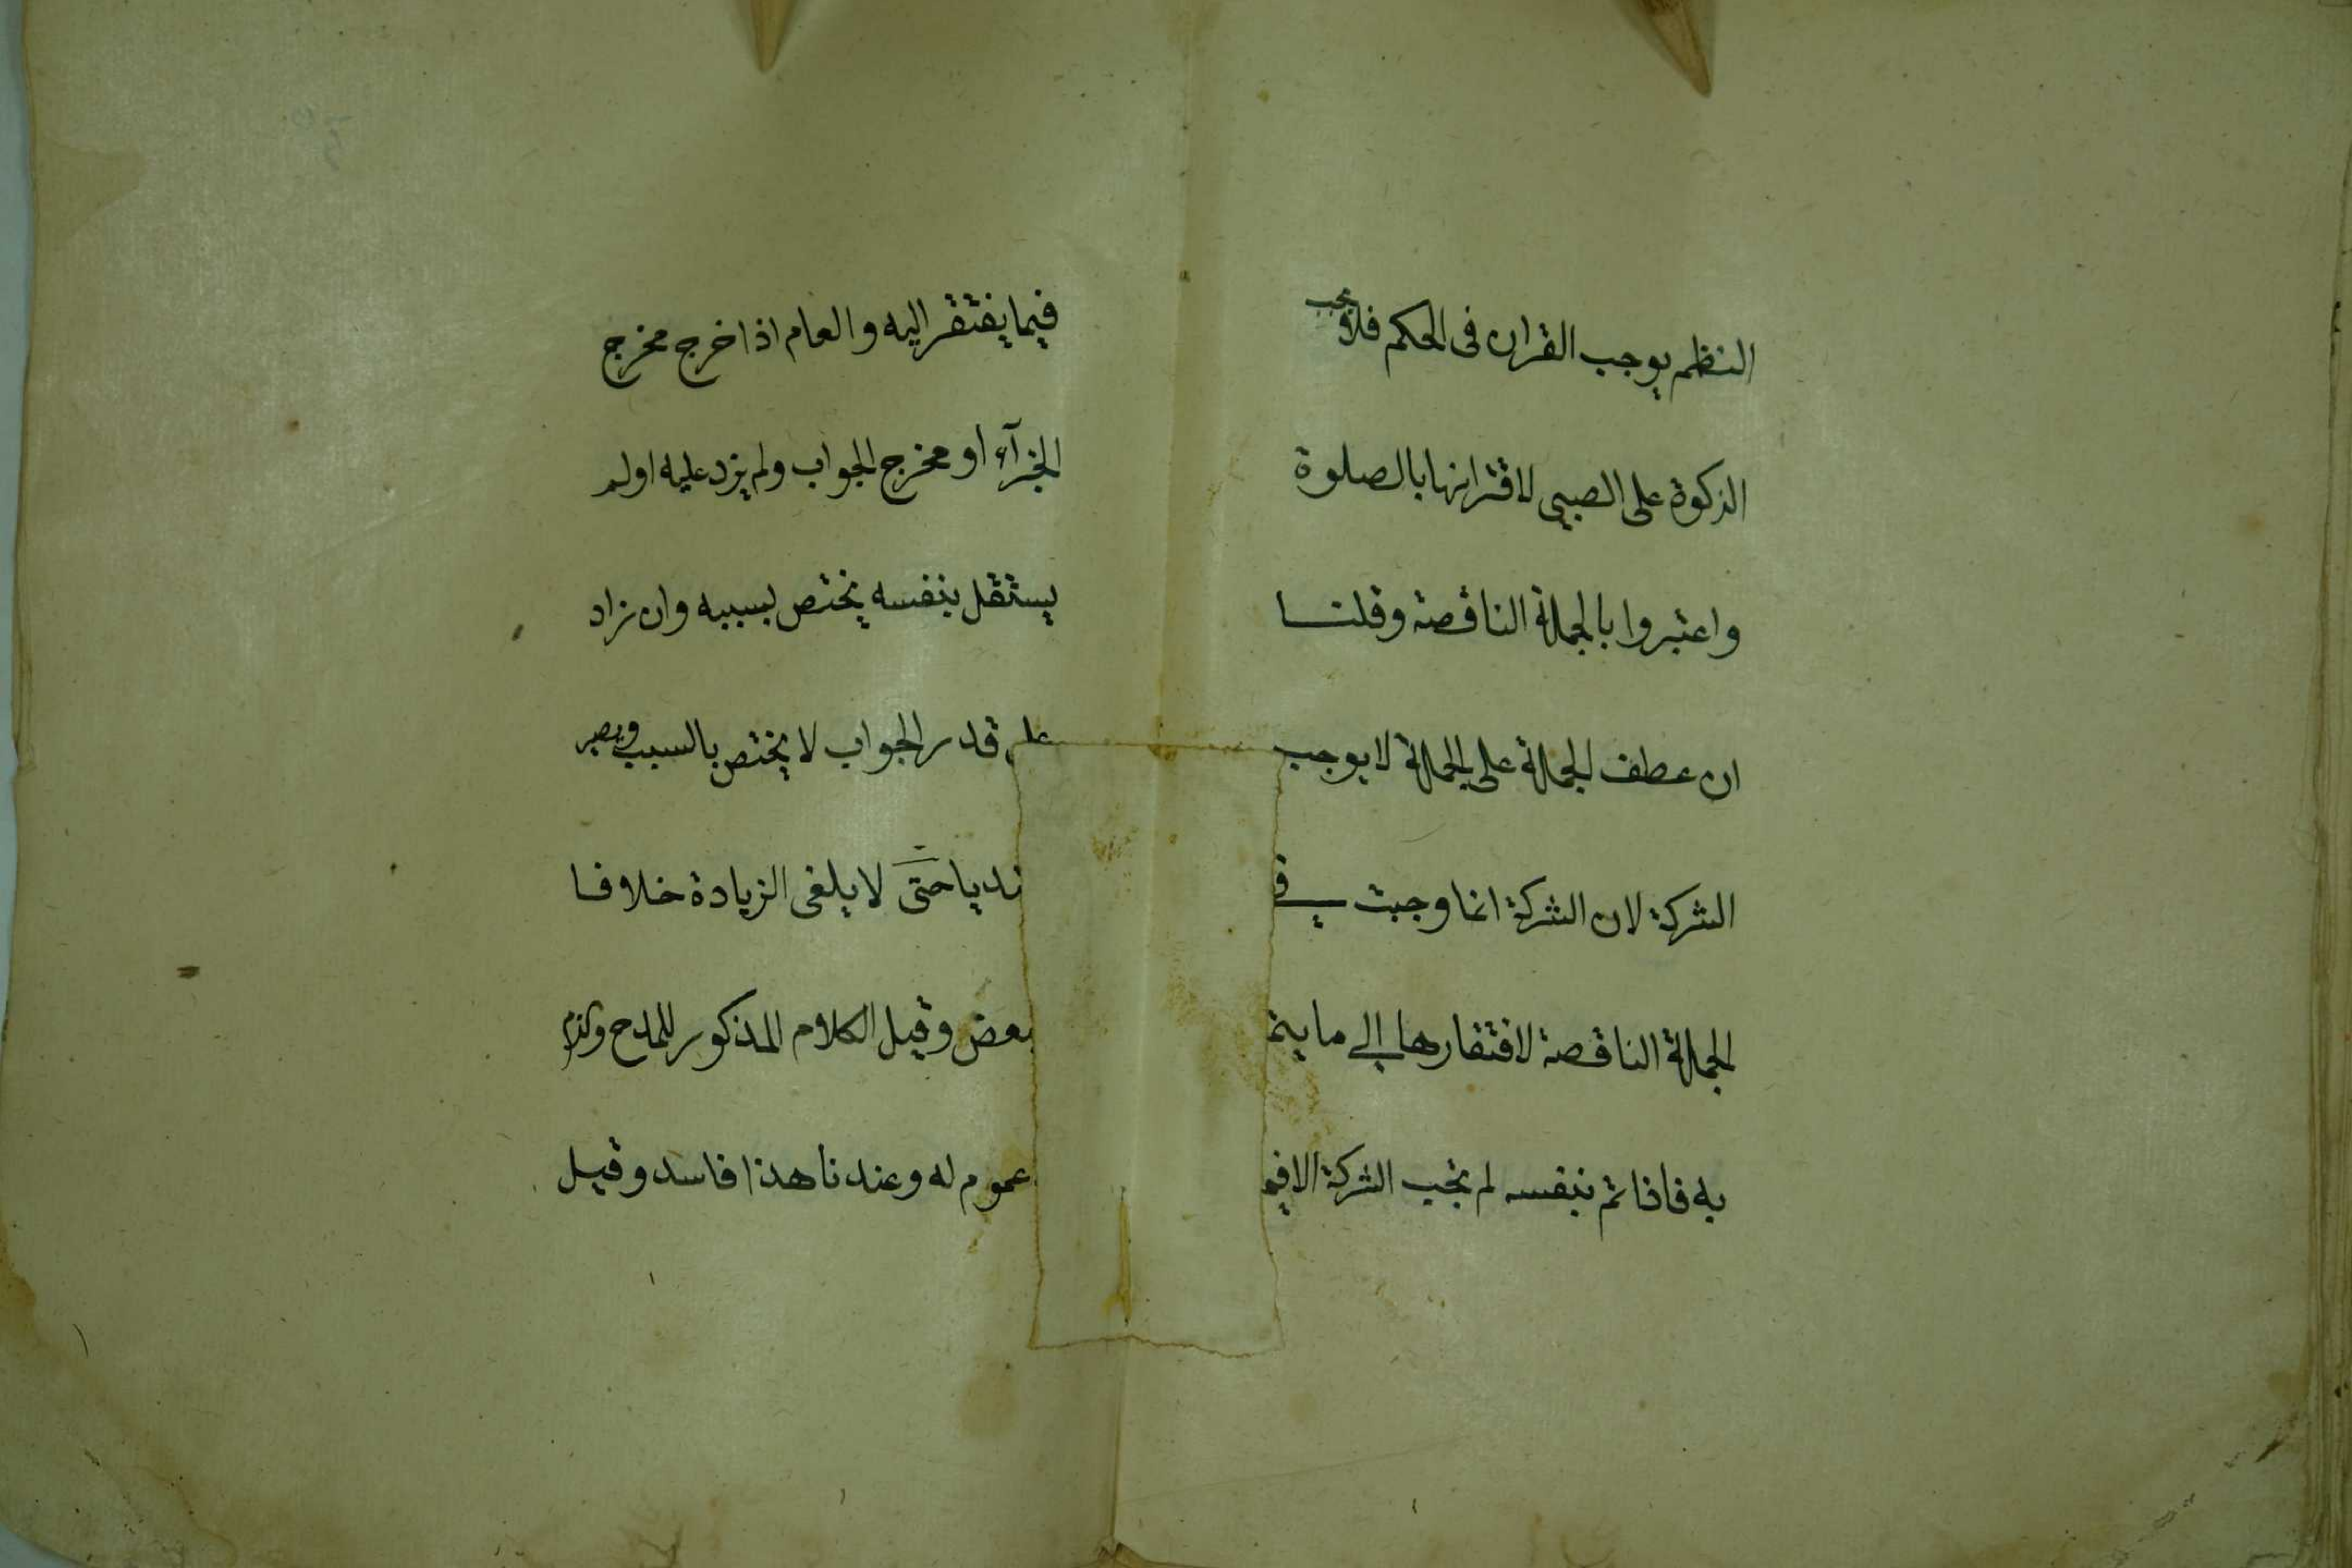 النظم يوجب القران فى الحكم فلا يجب
الزكوة على الصبى لاقترانها بالصلوة
واعتبروا بالجملة الناقصة وقلنا
ان عطف الجملة على الجملة لا يوجب
الشركة لان الشركة انما وجبت فى
الجملة الناقصة لافتقارها الى ما يتم
به فاذا تم بنفسه لم تجب الشركة الا فيما
فيما يفتقر اليه والعام اذا خرج مخرج
الجزآء او مخرج الجواب ولم يزد عليه اولم
يستقل بنفسه يختص بسببه وان زاد
على قدر الجواب لا يختص بالسبب ويصير
تديا حتى لا يلغى الزيادة خلافا
بعض وقيل الكلام المذكور للمدح والذم
عموم له وعندنا هذا فاسد وقيل